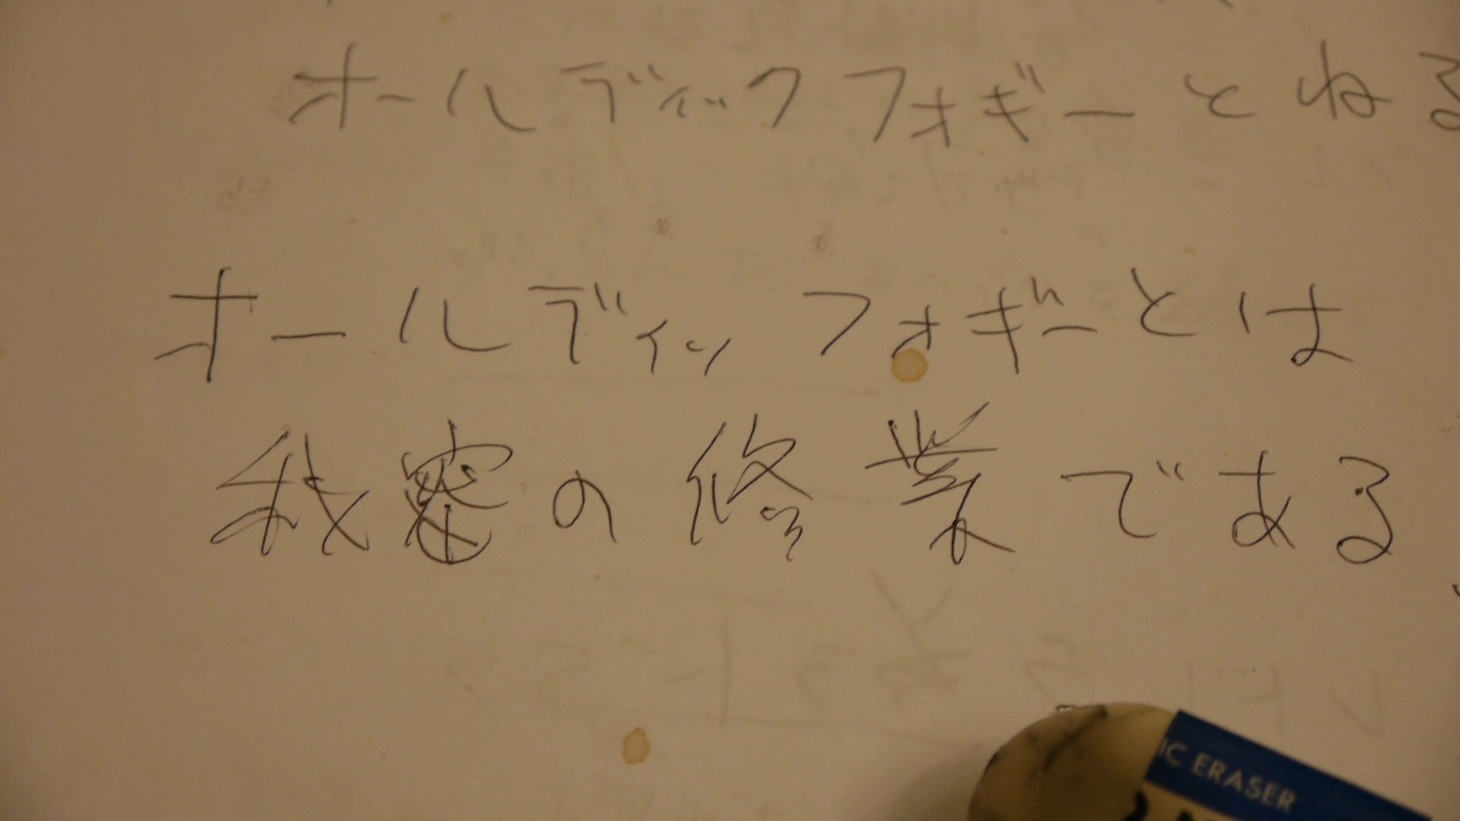 オールディックフォギーとねる
オールディッフォギーとは
我の修業である
UC ERASER